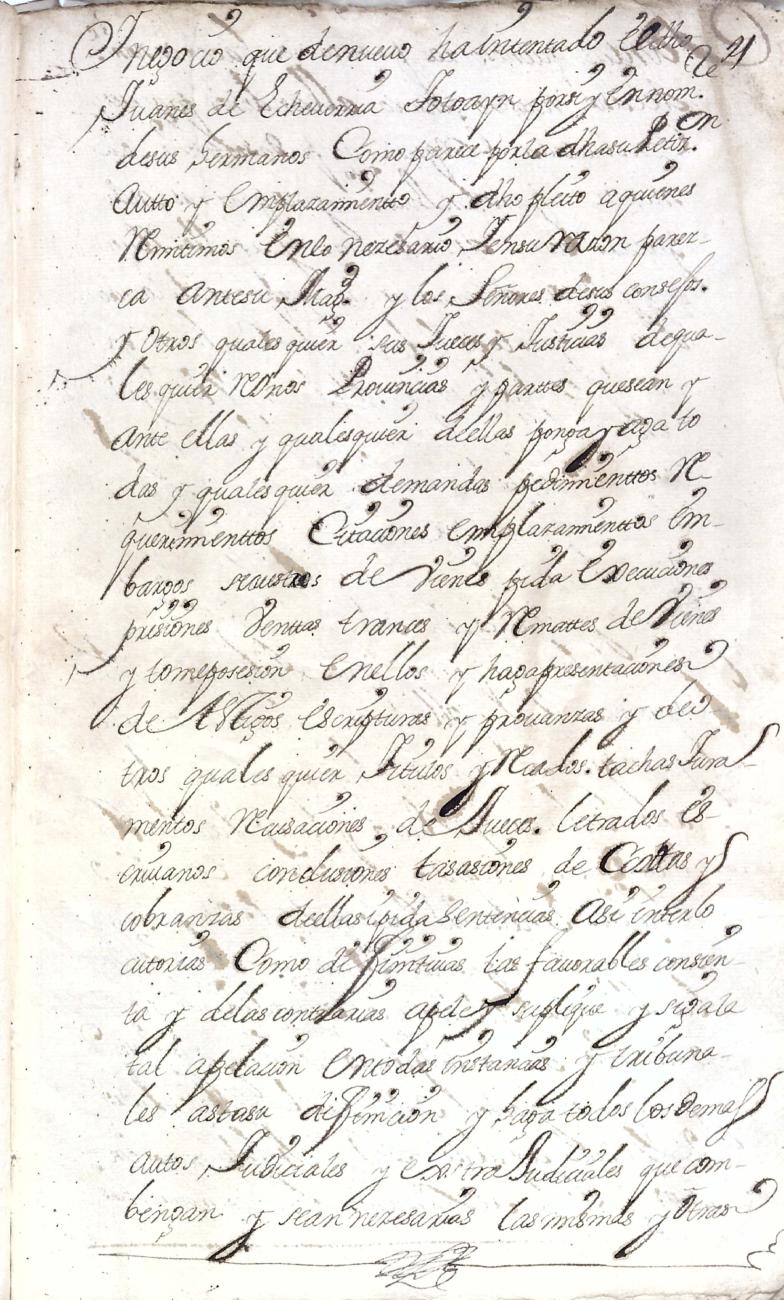 21
negocio que denuevo ha intentado el dho
Juanes de Echeverria Sotoayn porsi y En nom.
desus hermanos Como parece porla dhasu Petiz.on
autto y Emplazamientto y dho pleito aquienes
Remitimos Enlo nezesario, Y ensu razon parez-
ca Antesu Magd. y los Señores desus consejos.
y Otros quales quier sus Jueces y Justicias dequa-
les quier Reinos Provincias y parttes quesean y
Ante ellas y qualesquier deellas ponga y aga to
das y quales quier demandas pedimienttos Re-
querimienttos Citaciones Emplazamienttos Em-
bargos sequestros de Vienes pida Execuciones
prisiones Venttas trances y Remattes de Vienes
y tome posesion Enellos y haga presentaciones
de testigos Escripturas y provanzas y de o
tros quales quier Titulos y Recados. tachas Jura-
mentos Recusaciones de Jueces. letrados es-
crivanos conclusiones tasasiones de Costtas y
cobranzas deellas i pida Sentencias Asi interlo
cutorias Como difinitivas las favorables consien-
ta y delas contrarias apele y suplique y siga la
tal apelacion En todas instancias y tribuna-
les astasu difinicion y haga todos los demas
autos Judiciales y Extra Judiciales que com-
bengan y sean nezesarias las mismas y Otras